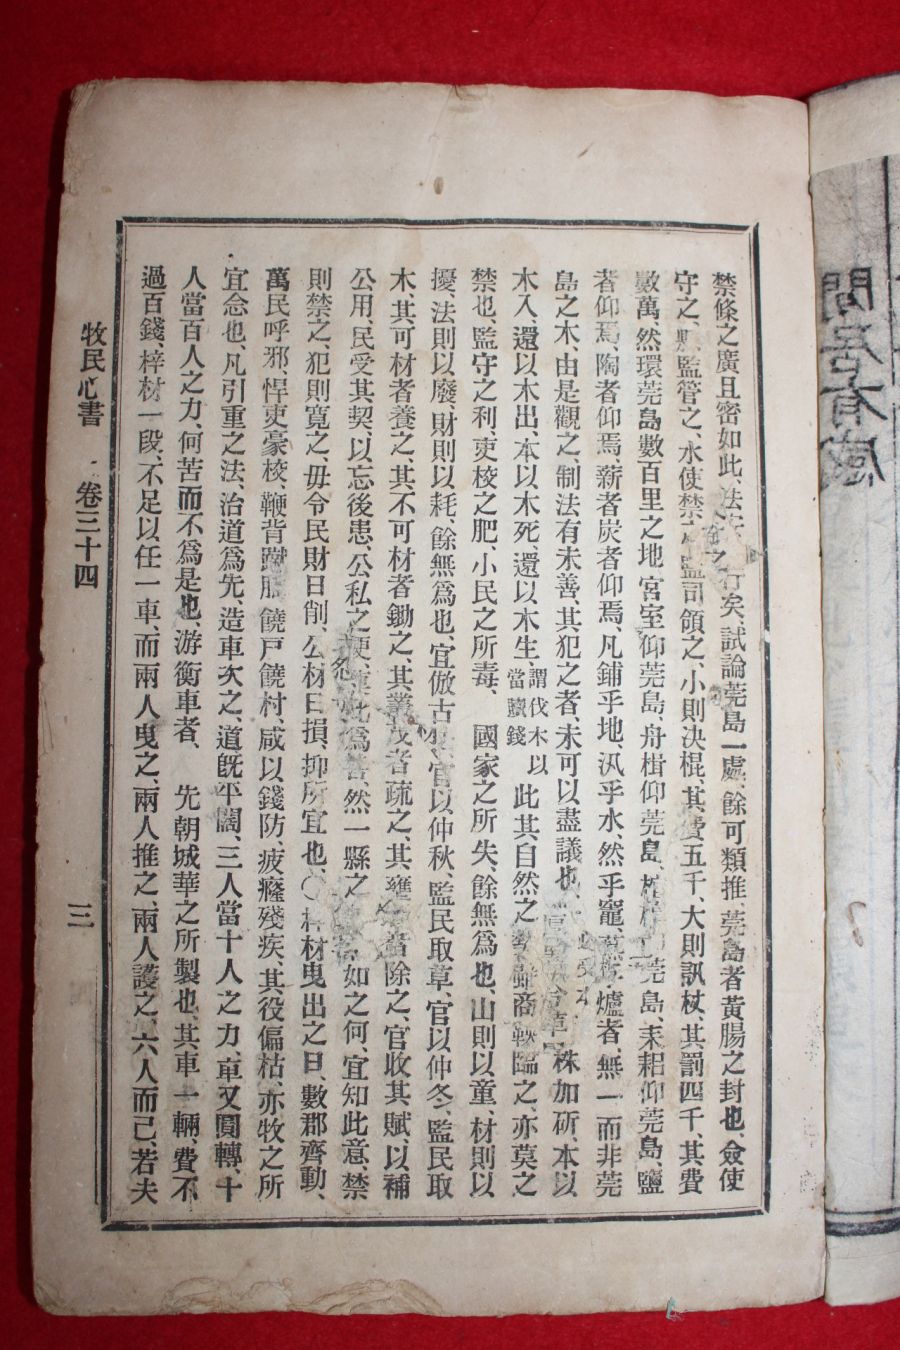 禁條之廣且密如此、法 行矣、試論莞島一處、餘可類推、莞島者黃腸之封也、僉使
守之、縣監管之、水使禁之、監司領之、小則決棍、其費五千、大則訊杖、其罰四千、其費
數萬、然環莞島數百里之地、宮室仰莞島、舟楫仰莞島、 莞島、耒耜仰莞島、鹽
者仰焉、陶者仰焉、薪者炭者仰焉、凡鋪乎地、汎乎水、然乎竈、 爐者、無一而非莞
島之木、由是觀之、制法有未善、其犯之者、未可以盡議也、 株加斫、本以
木入、還以木出、本以木死、還以木生、謂伐木當贖錢以此其自然之勢、雖商鞅臨之、亦莫之
禁也、監守之利、吏校之肥、小民之所毒、 國家之所失、餘無爲也、山則以童、材則以
擾、法則以廢、財則以耗、餘無爲也、宜倣古 官以仲秋、監民取草、官以仲冬、監民取
木、其可材者養之、其不可材者鋤之、其叢茂者疏之、其壅 者除之、官收其賦、以補
公用、民受其契、以忘後患、公私之便、 爲善、然一縣之 如之何、宜知此意、禁
則禁之、犯則寬之、毋令民財日削、公材日損、抑所宜也、○梓材曳出之日、數郡齊動、
萬民呼邪、悍吏豪校、鞭背蹴 饒戶饒村、咸以錢防、疲癃殘疾、其役偏枯、亦牧之所
宜念也、凡引重之法、治道爲先、造車次之、道旣平闊、三人當十人之力、車又圓轉、十
人當百人之力、何苦而不爲是也、游衡車者、 先朝城華之所製也、其車一輛、費不
過百錢、梓材一段、不足以任一車、而兩人曳之、兩人推之、兩人護之、六人而已、若夫
牧民心書 卷三十四 三
閑居有感